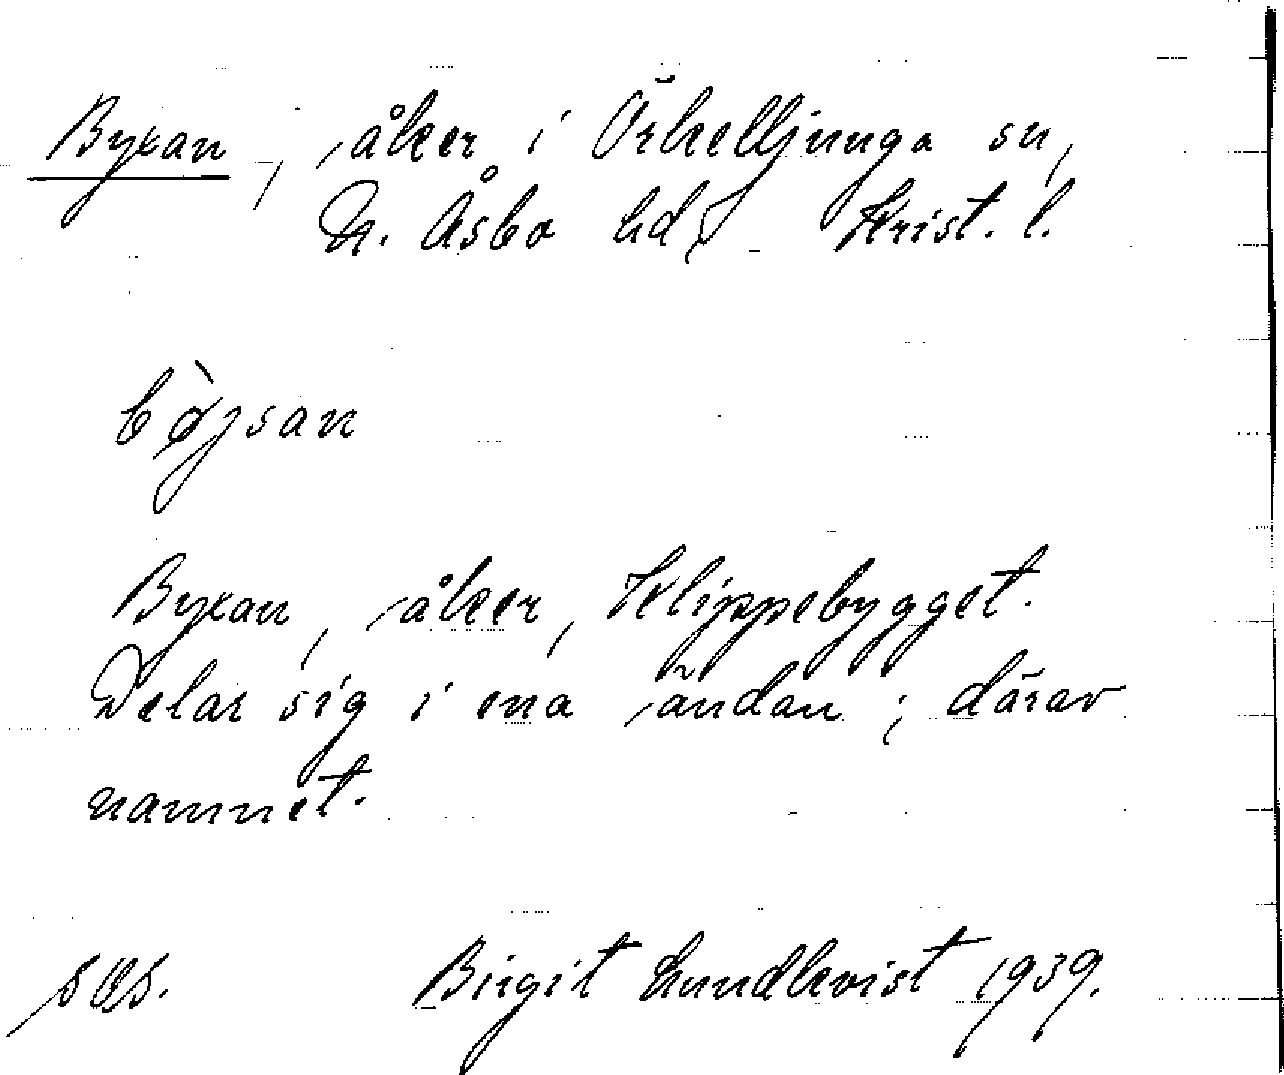 Byxan, åker i Örkelljunga sn,
N. Åsbo hd, Krist. l.
bøjsan
Byxan, åker, Klippebygget.
Delar sig i ena ändan; därav
namnet.
Birgit Lundkvist 1939.